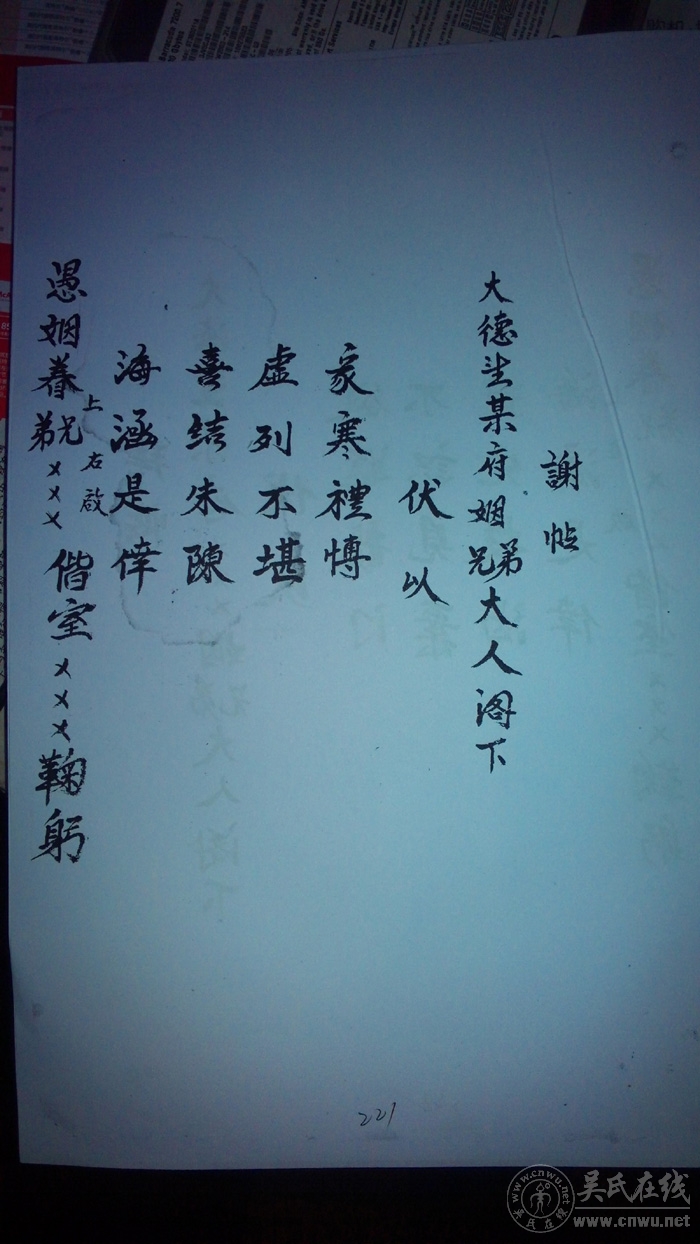 謝帖
大德坒某府姻兄弟大人阁下
伏以
家寒禮愽
虚列不堪
喜结朱陳
海涵是倖
上右啟
愚姻眷弟兄××× 偕室×××鞠躬
221
吴氏在线
www.cnwu.net